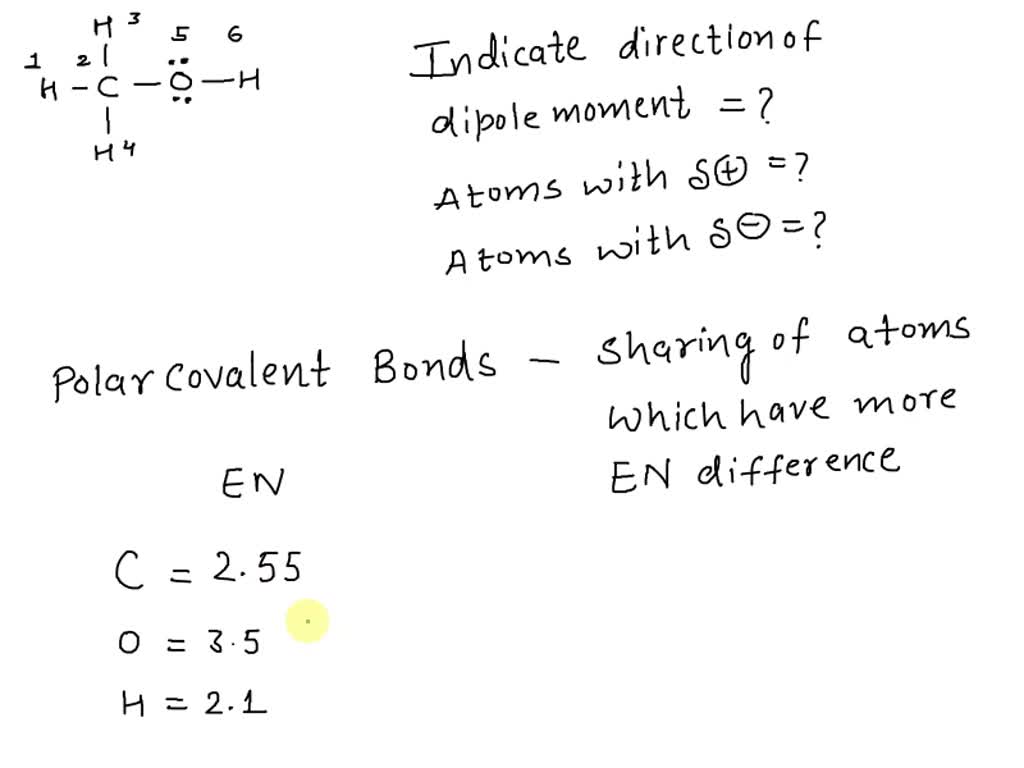 H 3
1 2 5 6
H - C - O - H
H 4
Indicate direction of
dipole moment = ?
Atoms with δ⊕ = ?
Atoms with δ⊖ = ?
Polar covalent Bonds - sharing of atoms
which have more
EN difference
EN
C = 2.55
O = 3.5
H = 2.1